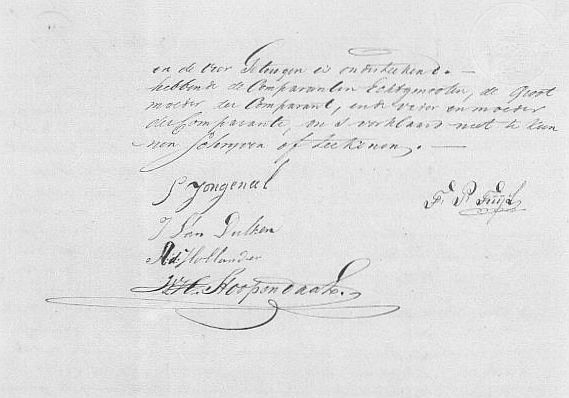 en de voor Getuigen is onderteekend. —
hebbende de Comparanten Echtgenooten, de Groot
moeder der Comparant, ende vader en moeder
der Comparante, ons verklaard niet te kun
nen Schryven of teekenen. —
S Jongeneel
F. P.
J Van Dulken
Ad: Hollander